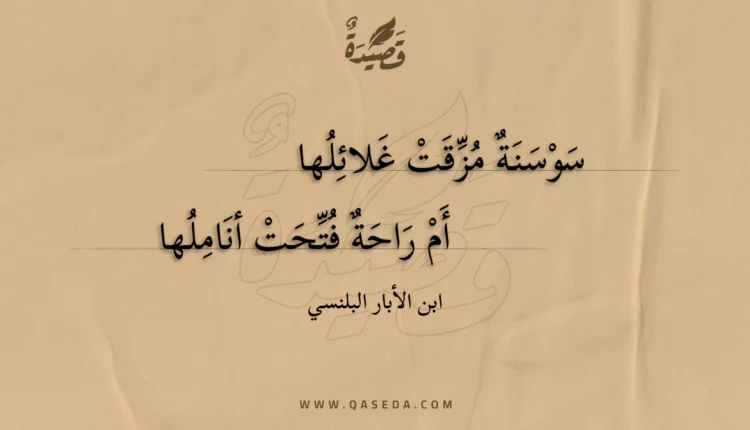 قَصِيدَةٌ
سَوْسَنَةٌ مُزِّقَتْ غَلائِلُها
أَمْ رَاحَةٌ فُتِّحَتْ أنَامِلُها
ابن الأبار البلنسي
WWW.QASEDA.COM